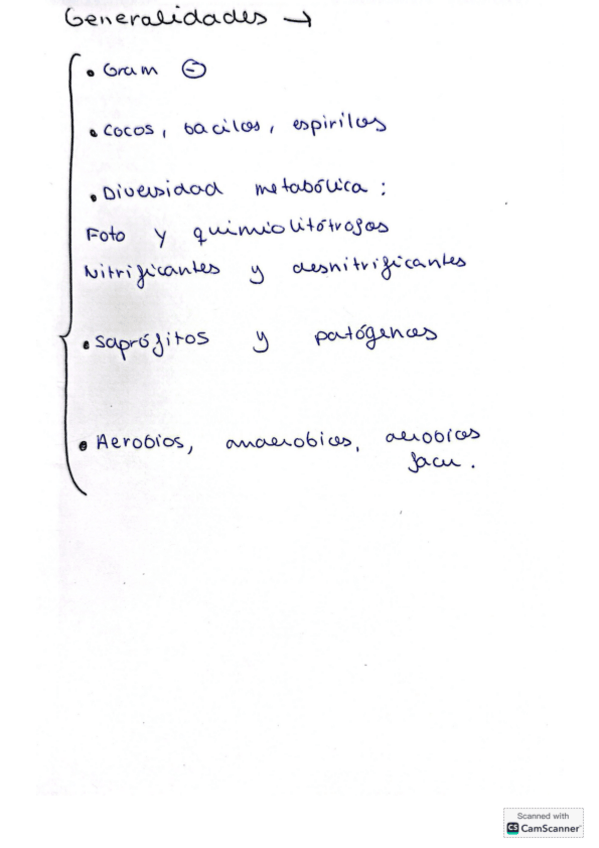 Generalidades →
• Gram ⊖
• Cocos, bacilos, espirilos
• Diversidad metabólica:
Foto y quimiolitótrofos
Nitrificantes y desnitrificantes
• Saprófitos y patógenos
• Aerobios, anaerobios, aerobios
facu.
Scanned with
CS CamScanner